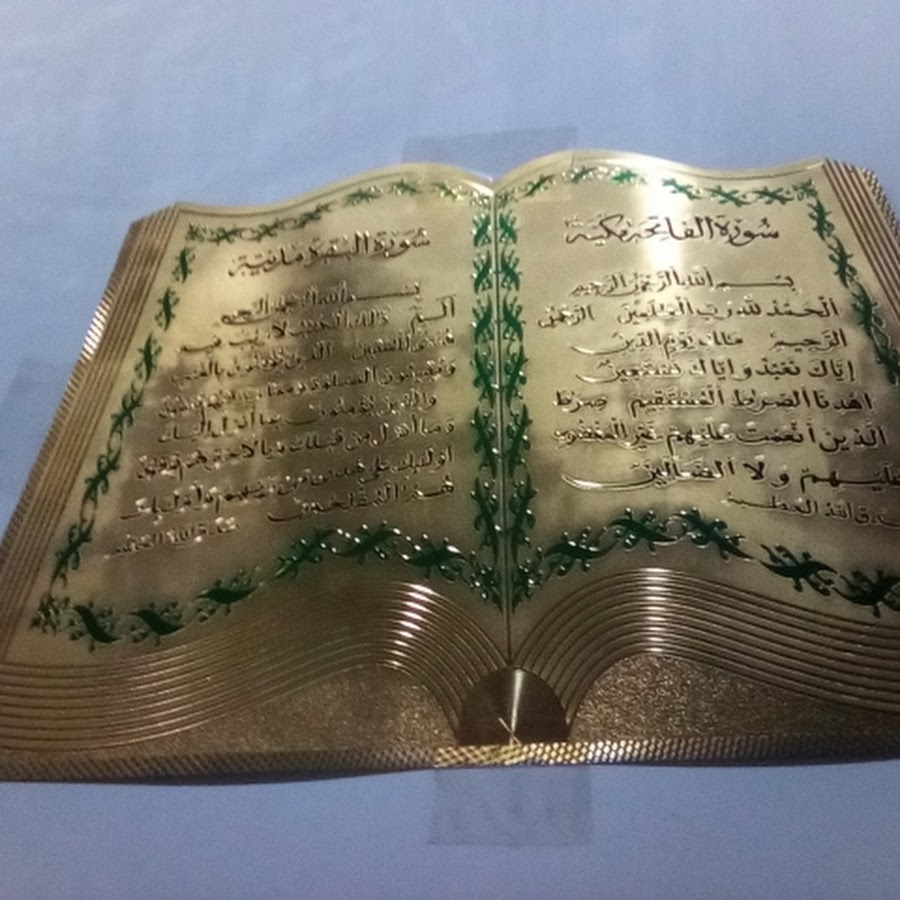 سورة الفاتحة مكية
بسم الله الرحمن الرحيم
الحمد لله رب العلمين الرحمن
الرحيم ملك يوم الدين
إياك نعبد وإياك نستعين
اهدنا الصرط المستقيم صرط
الذين أنعمت عليهم غير المغضوب
عليهم ولا الضالين
صدق الله العظيم
سورة البقرة مدنية
بسم الله الرحمن الرحيم
الم ذلك الكتب لا ريب فيه
هدى للمتقين الذين يؤمنون بالغيب
ويقيمون الصلوة ومما رزقنهم ينفقون
والذين يؤمنون بما أنزل إليك
وما أنزل من قبلك وبالآخرة هم يوقنون
أولئك على هدى من ربهم وأولئك
هم المفلحون
صدق الله العظيم